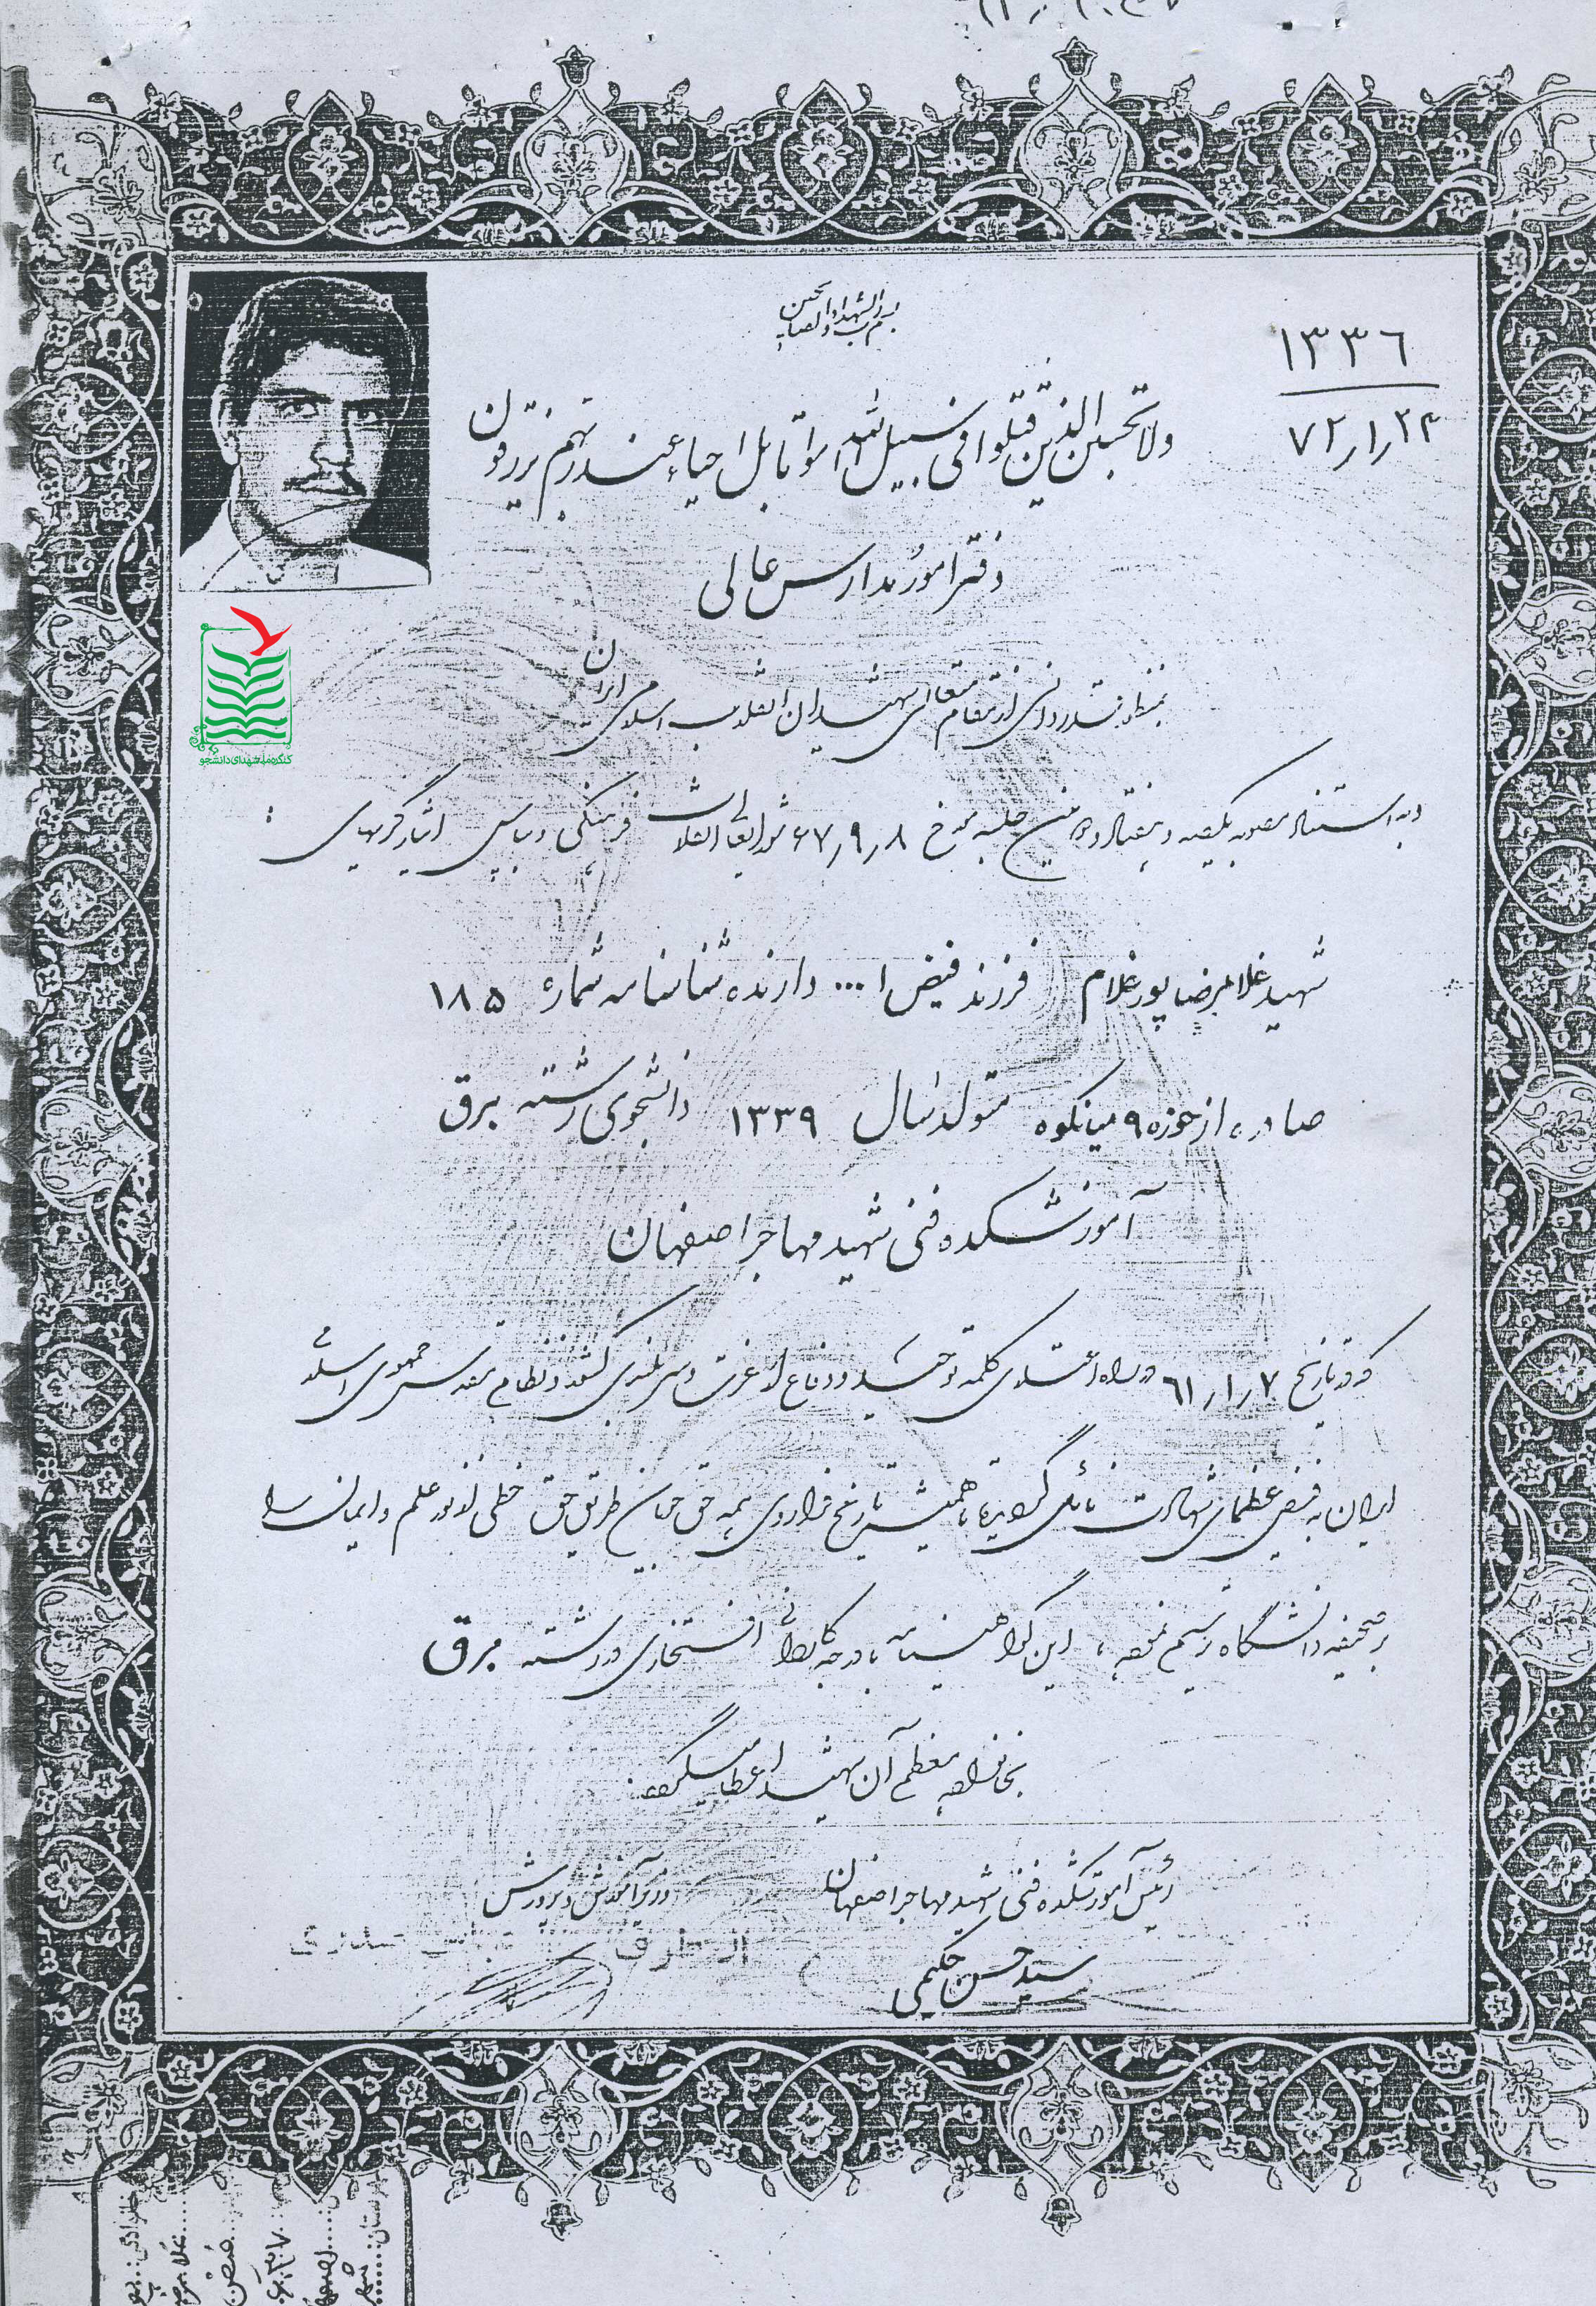 بسم رب الشهداء والصالحین
۱۳۳۶
۷۲/۱/۲۴
ولا تحسبن الذین قتلوا فی سبیل الله امواتا بل احیاء عند ربهم یرزقون
دفتر امور مدارس عالی
بمنظور قدردانی از مقام متعالی شهیدان انقلاب اسلامی ایران
کنگره ملی شهدای دانشجو
و به استناد مصوبه یکصد و هفتاد و جلسه مورخ ۶۷/۹/۸ شورایعالی انقلاب فرهنگی و بپاس ایثارگریهای :
شهید غلامرضا پورغلام فرزند فیض ا... دارنده شناسنامه شماره ۱۸۵
صادره از حوزه ۹ میانکوه متولد سال ۱۳۳۹ دانشجوی رشته برق
آموزشکده فنی شهید مهاجر اصفهان
که در تاریخ ۶۱/۱/۷ در راه اعتلای کلمه توحید و دفاع از عزت و سربلندی کشور و نظام مقدس جمهوری اسلامی
ایران به فیض عظمای شهادت نائل گردیده تا همیشه تاریخ فراروی همه حق جویان طریق حق خطی از نور علم و ایمان را
بر صحیفه دانشگاه ترسیم نموده، این گواهینامه با درجه کاردانی افتخاری در رشته برق
بخانواده معظم آن شهید اعطا میگردد.
رئیس آموزشکده فنی شهید مهاجر اصفهان
وزیر آموزش و پرورش
از طرف
سید حسن حکیمی